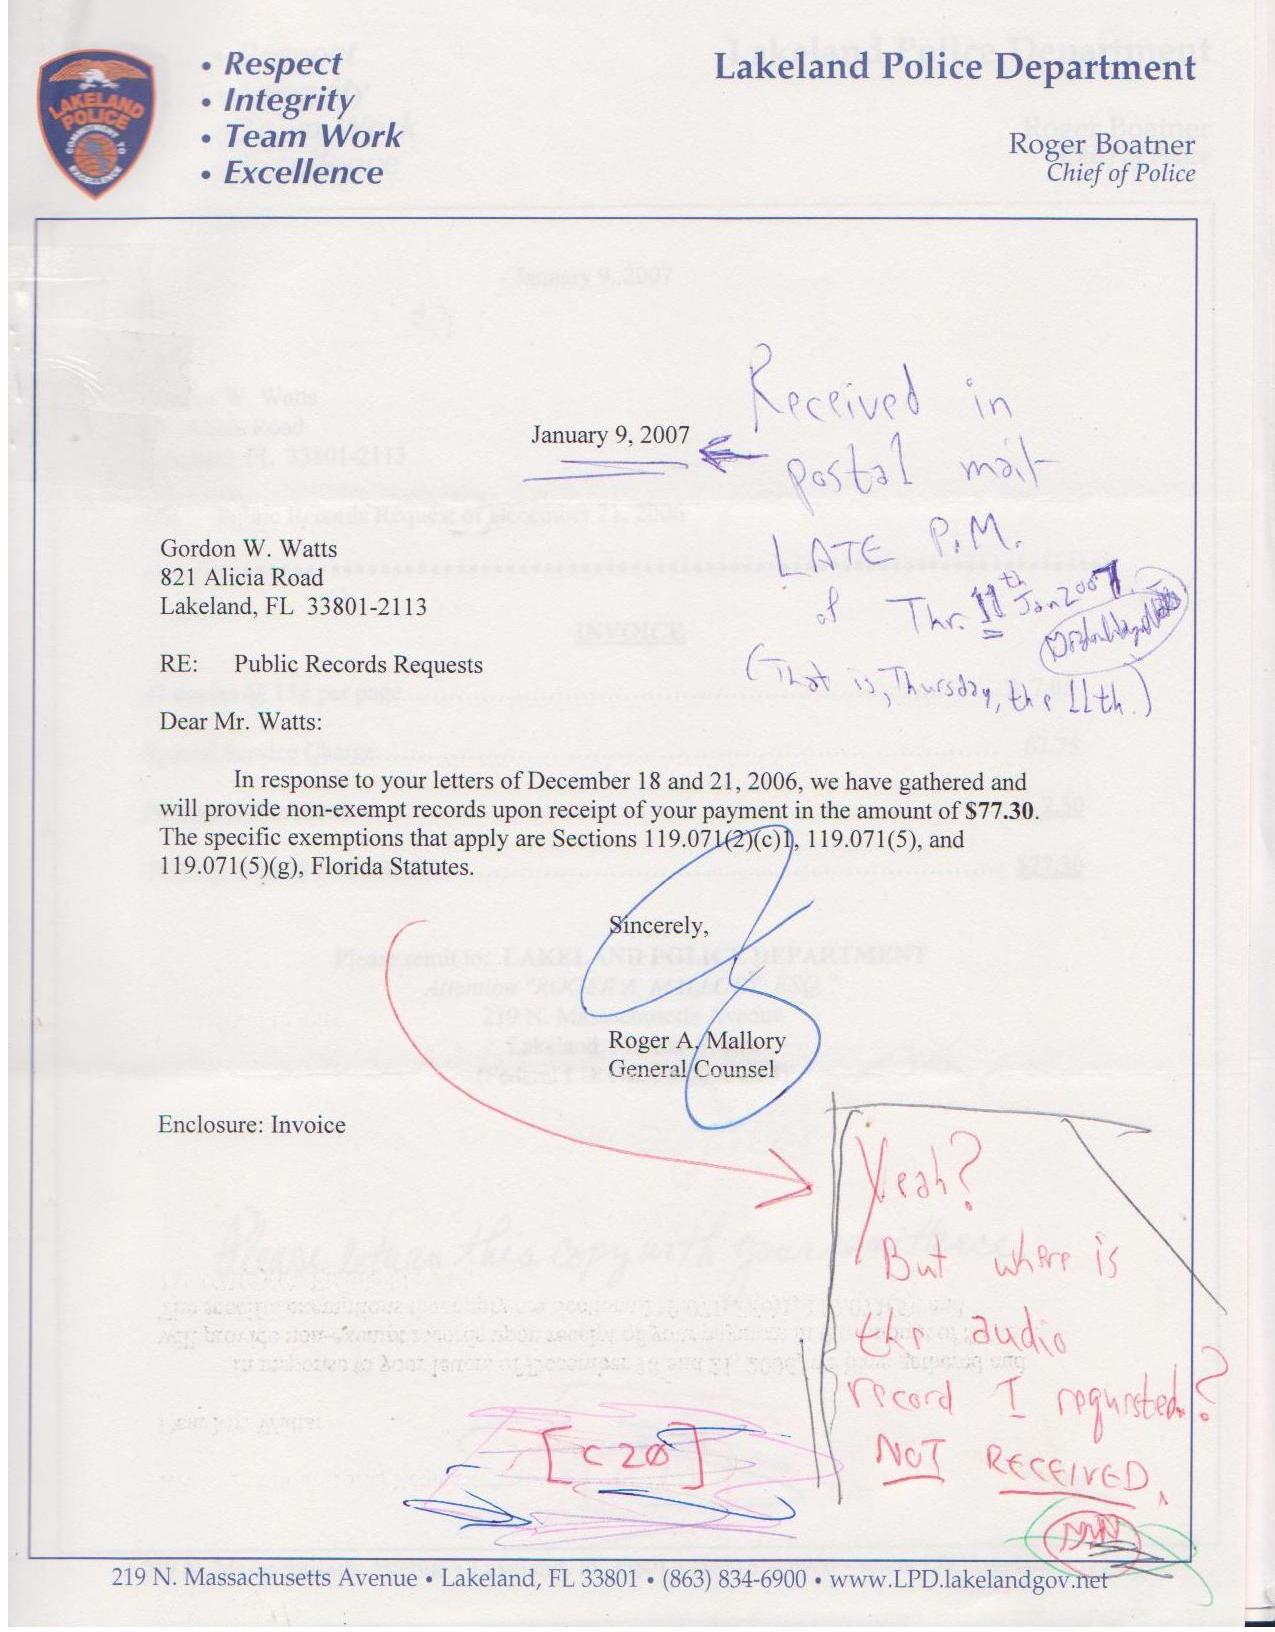 LAKELAND
POLICE
COMMITMENT TO
EXCELLENCE
• Respect
• Integrity
• Team Work
• Excellence
Lakeland Police Department
Roger Boatner
Chief of Police
January 9, 2007
Received in
postal mail
LATE P.M.
of Thr. 11th Jan 2007.
(That is, Thursday, the 11th.)
Gordon W. Watts
821 Alicia Road
Lakeland, FL 33801-2113
RE: Public Records Requests
Dear Mr. Watts:
In response to your letters of December 18 and 21, 2006, we have gathered and
will provide non-exempt records upon receipt of your payment in the amount of $77.30.
The specific exemptions that apply are Sections 119.071(2)(c)1, 119.071(5), and
119.071(5)(g), Florida Statutes.
Sincerely,
Roger A. Mallory
General Counsel
Enclosure: Invoice
Yeah?
But where is
the audio
record I requested?
NOT RECEIVED.
[C20]
219 N. Massachusetts Avenue • Lakeland, FL 33801 • (863) 834-6900 • www.LPD.lakelandgov.net